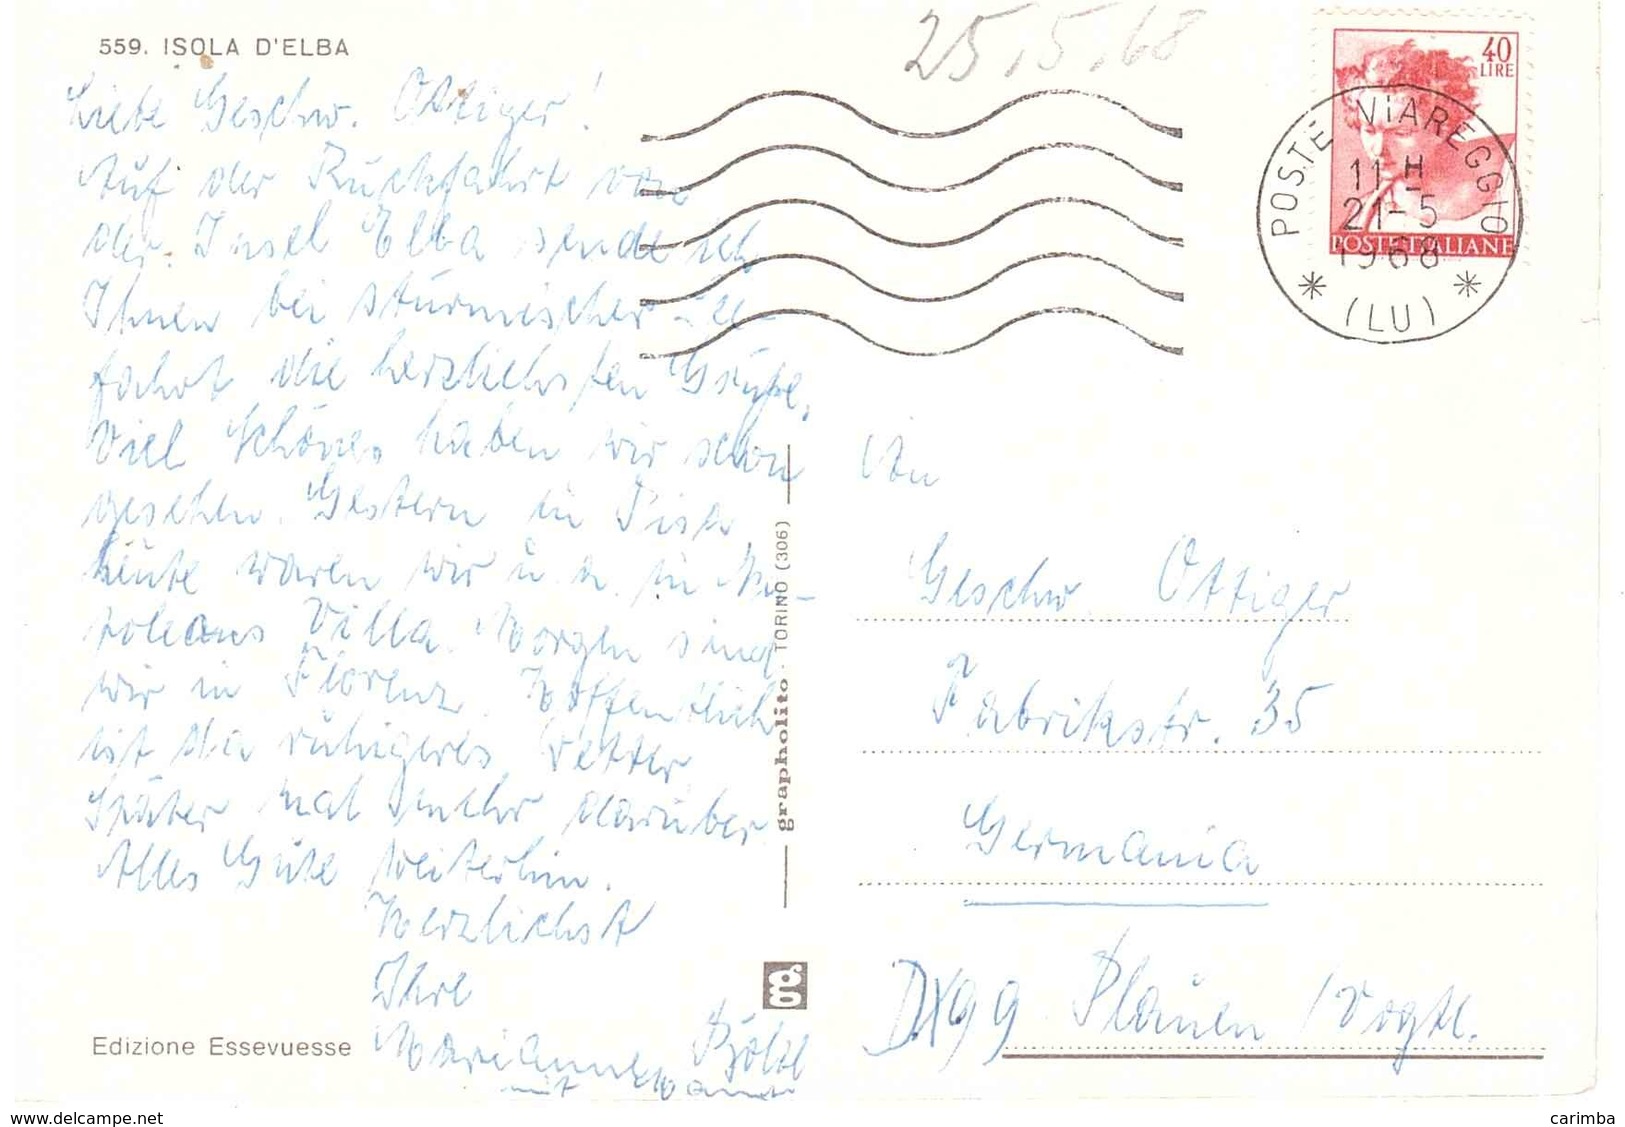 559. ISOLA D'ELBA
25.5.68
40
LIRE
POSTE ITALIANE
POSTE VIAREGGIO
11 H
21-5
1968
* (LU) *
Liebe Geschw. Ottiger!
Auf der Rückfahrt von
der Insel Elba sende ich
Ihnen bei stürmischer Über-
fahrt die herzlichsten Grüße.
Viel Schönes haben wir schon
gesehen. Gestern in Pisa,
heute waren wir u. a. in Na-
poleons Villa. Morgen sind
wir in Florenz. Hoffentlich
ist da ruhigeres Wetter.
Später mal mehr darüber.
Alles Gute weiterhin.
Herzlichst
Ihre
Marianne
mit
Edizione Essevuesse
grapholito - TORINO (306)
gg
An
Geschw. Ottiger
Fabrikstr. 35
Germania
99 Plauen /Vogtl.
delcampe.net
carimba